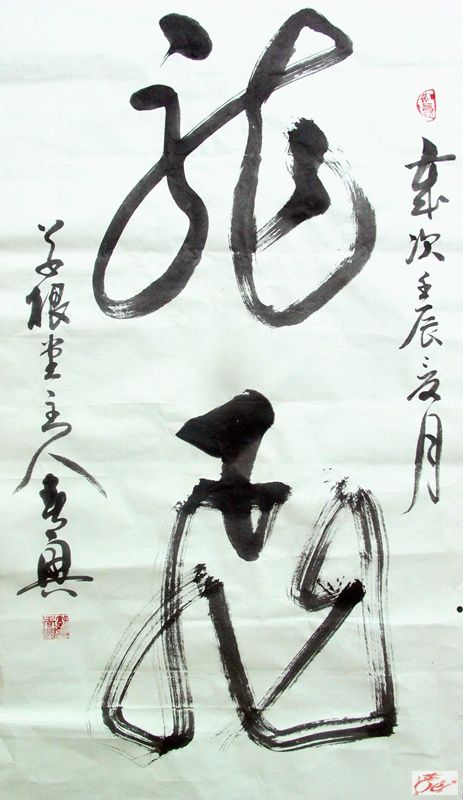 歲次壬辰夏月
龍飛
草根堂主人春興